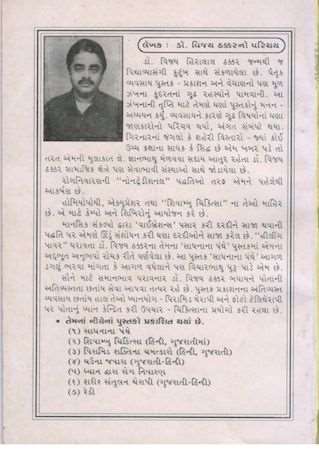 લેખક : ડૉ. વિજય ઠક્કરનો પરિચય
ડૉ. વિજય હિરાલાલ ઠક્કર જન્મથી જ
વિદ્યાવ્યાસંગી કુટુંબ સાથે સંકળાયેલા છે. પૈતૃક
વ્યવસાય પુસ્તક - પ્રકાશન અને વેચાણનો પણ મૂળ
ઝંખના કુદરતનાં ગૂઢ રહસ્યોને પામવાની. આ
ઝંખનાની તૃપ્તિ માટે તેમણે ઘણાં પુસ્તકોનું મનન -
અધ્યયન કર્યું. વ્યવસાયને કારણે ગૂઢ વિદ્યાઓનાં ઘણાં
જાણકારોનો પરિચય થયો, અંગત સંબંધો થયા.
ગિરનારનાં જંગલો કે શહેરી વિસ્તારો - જ્યાં કોઈ
ઉચ્ચ કક્ષાના સાધક કે સિદ્ધ છે એમ ખબર પડે તો
તરત એમની મુલાકાત લે. જ્ઞાનભાથુ મેળવવા સદાય આતુર રહેતા ડૉ. વિજય
ઠક્કર સામાજિક ક્ષેત્રે પણ સેવાભાવી સંસ્થાઓ સાથે જોડાયેલા છે.
રોગનિવારણની "નોનટ્રેડીશનલ" પદ્ધતિઓ તરફ એમને પહેલેથી
આકર્ષણ છે.
હોમિયોપેથી, એક્યુપ્રેશર તથા "શિવામ્બુ ચિકિત્સા" ના તેઓ માહિર
છે. એ માટે કેમ્પો અને શિબિરોનું આયોજન કરે છે.
માનસિક સંકલ્પો દ્વારા 'વાઈબ્રેશન્સ' પસાર કરી દરદીને સાજા થવાની
પદ્ધતિ પર એમણે ઊંડું સંશોધન કરી ઘણા દરદીઓને સાજા કરેલ છે. "હીલીંગ
પાવર" ધરાવતા ડૉ. વિજય ઠક્કરના તેમના 'સાધનાના પંથે' પુસ્તકમાં એમના
અદ્ભૂત અનુભવો રોચક રીતે વર્ણવેલા છે. આ પુસ્તક 'સાધનાના પંથે' આગળ
ડગલું ભરવા માંગતા કે આગળ વધેલાને પણ વિચારભાથુ પુરૂં પાડે એમ છે.
સૌને માટે સમાનભાવ ધરાવનાર ડૉ. વિજય ઠક્કર બધાયને પોતાની
અતિવ્યસ્તતા છતાંય સેવા આપવા તત્પર રહે છે. પુસ્તક પ્રકાશનના અતિવ્યસ્ત
વ્યવસાય છતાંય હાલ તેઓ ધ્યાનયોગ - પિરામિડ થેરાપી અને ફોટો ટેલિથેરાપી
પર પોતાનું ધ્યાન કેન્દ્રિત કરી ઉપચાર - ચિકિત્સાના પ્રયોગો કરી રહ્યા છે.
• તેમનાં નીચેનાં પુસ્તકો પ્રકાશિત થયાં છે.
(૧) સાધનાના પંથે
(૨) શિવામ્બુ ચિકિત્સા (હિન્દી, ગુજરાતીમાં)
(૩) પિરામિડ શક્તિના ચમત્કારો (હિન્દી, ગુજરાતી)
(૪) ઘઉંના જવારા (ગુજરાતી-હિન્દી)
(૫) ધ્યાન દ્વારા રોગ નિવારણ
(૬) શરીર સંતુલન થેરાપી (ગુજરાતી-હિન્દી)
(૭) રેકી